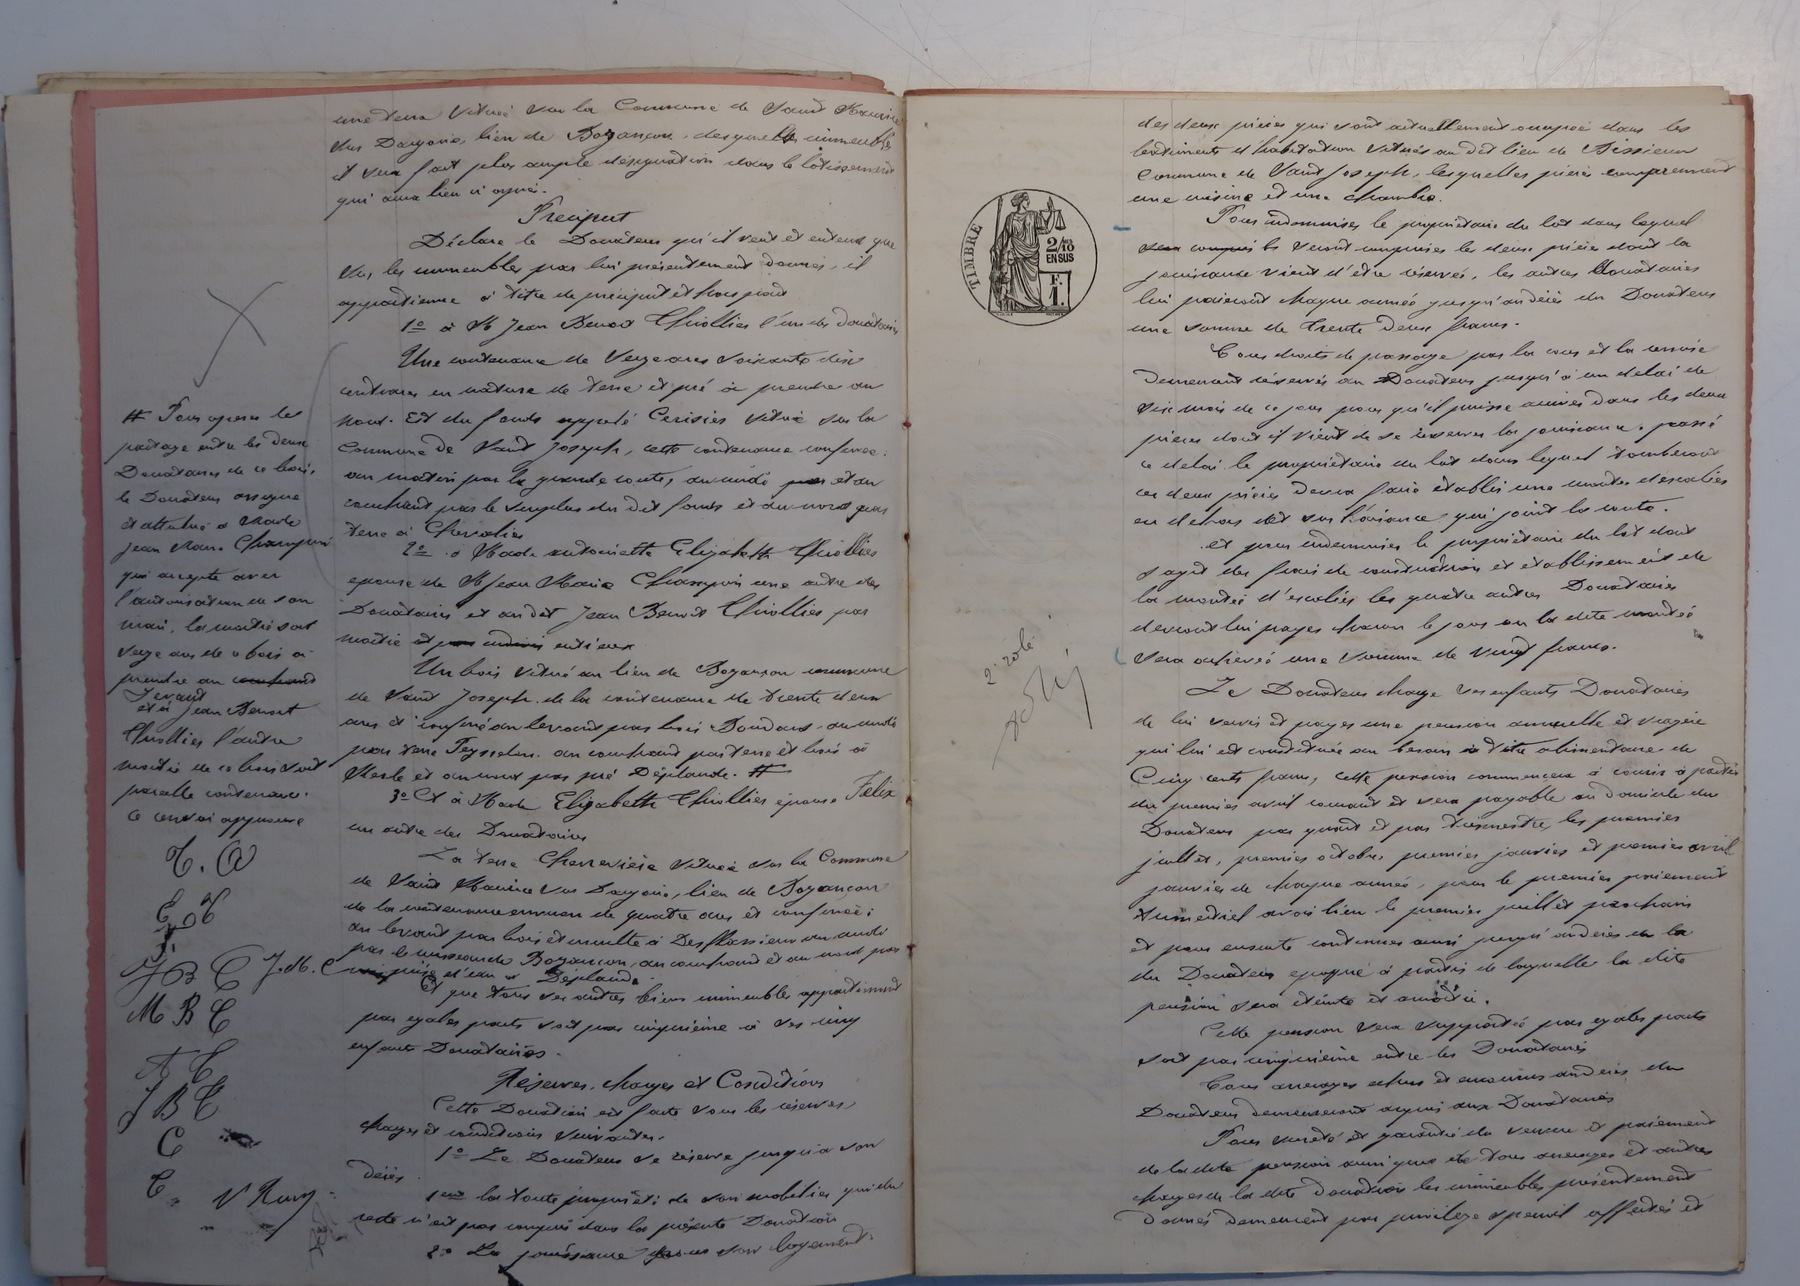 une terre située sur la Commune de Saint Maurice
sur Dargoire, lieu de Bozançon, desquels immeubles
il sera fait plus ample désignation dans le lotissement
qui aura lieu ci après.
Preciput
Déclare le Donateur qu'il veut et entend que
sur les immeubles par lui présentement donnés, il
appartienne à titre de préciput et hors part
1º à M Jean Benoit Thiollier l'un des donataires
Une contenance de seize ares soixante dix
centiares en nature de terre et pré à prendre au
nord. Est du fonds appelé Cerisier situé sur la
Commune de Saint Joseph, cette contenance confinée:
au matin par la grande route, au midi et au
couchant par le surplus du dit fonds et au nord par
terre à Chevalier
2º à Made antoinette Elizabeth Thiollier
epouse de M Jean Marie Champin une autre des
Donataires et au dit Jean Benoit Thiollier par
moitié et par indivis entr'eux
Un bois situé au lieu de Bozançon commune
de Saint Joseph de la contenance de trente deux
ares et confiné au levant par bois Bondard au midi
par terre Teysselin. au couchant par terre et bois à
Merle et au nord par pré Déplaude. #
3º Et à Made Elizabeth Thiollier épouse Félix
un autre des Donataires
La terre Chenevière située sur la Commune
de Saint Maurice sur Dargoire, lieu de Bozançon
de la contenance environ de quatre ares et confinée:
au levant par bois et inculte à Desflassieux au midi
par le ruisseau de Bozançon, au couchant et au nord par
prise d'eau à Déplaude
Et que tous ses autres biens immeubles appartiennent
par egales parts soit par cinquième à ses cinq
enfants Donataires.
Réserves, charges et Conditions
Cette Donation est faite sous les réserves,
charges et conditions suivantes.
1º Le Donateur se réserve jusqu'à son
décès
1ent la toute propriété de son mobilier qui du
reste n'est pas compris dans la présente Donation
2º La jouissance pour son logement
# Pour operer le
partage entre les deux
Donataires de ce bois,
le Donateur assigne
et attribue à Made
Jean Marie Champin
qui accepte avec
l'autorisation de son
mari, la moitié soit
seize ares de ce bois à
prendre au couchant
Levant
et à Jean Benoit
Thiollier l'autre
moitié de ce bois soit
pareille contenance.
ce renvoi approuvé
T. A
E T
J B C J. M. C
M B C
A C
J B C
C
C
V Rury
TIMBRE
2/10
EN SUS
F.
1.
2e rôle
des deux pièces qui sont actuellement occupées dans les
batiments d'habitation situés au dit lieu de Bissieux
Commune de Saint Joseph, lesquelles pièces comprennent
une cuisine et une chambre.
Pour indemniser le propriétaire du lot dans lequel
sera compris les seront comprises les deux pièces dont la
jouissance vient d'etre réservée, les autres Donataires
lui paieront chaque année jusqu'au décès du Donateur
une somme de trente deux francs.
Tous droits de passage par la cour et la remise
demeurent réservés au Donateur jusqu'à un délai de
six mois de ce jour pour qu'il puisse arriver dans les deux
pièces dont il vient de se réserver la jouissance. passé
ce délai le propriétaire du lot dans lequel tomberont
ces deux pièces devra faire établir une montée d'escalier
en dehors et sur l'aisance qui joint la route.
et pour indemniser le propriétaire du lot dont
s'agit des frais de construction et établissement de
la montée d'escalier les quatre autres Donataires
devront lui payer chacun le jour où la dite montée
sera achevée une somme de vingt francs.
Le Donateur charge ses enfants Donataires
de lui servir et payer une pension annuelle et viagère
qui lui est constituée au besoin à titre alimentaire de
Cinq cents francs, cette pension commencera à courir à partir
du premier avril courant et sera payable au domicile du
Donateur par quart et par trimestre, les premier
juillet, premier octobre premier janvier et premier avril
janvier de chaque année, pour le premier paiement
trimestriel avoir lieu le premier juillet prochain
et pour ensuite continuer ainsi jusqu'au décès
du Donateur epoque à partir de laquelle la dite
pension sera éteinte et amortie.
Cette pension sera supportée par egales parts
soit par cinquième entre les Donataires
Tous arrerages echus et encourus au décès du
Donateur demeureront acquis aux Donataires
Pour sureté et garantie du service et paiement
de la dite pension ainsi que de tous arrerages et autres
charges de la dite Donation les immeubles présentement
donnés demeurent par privilège spécial affectés et